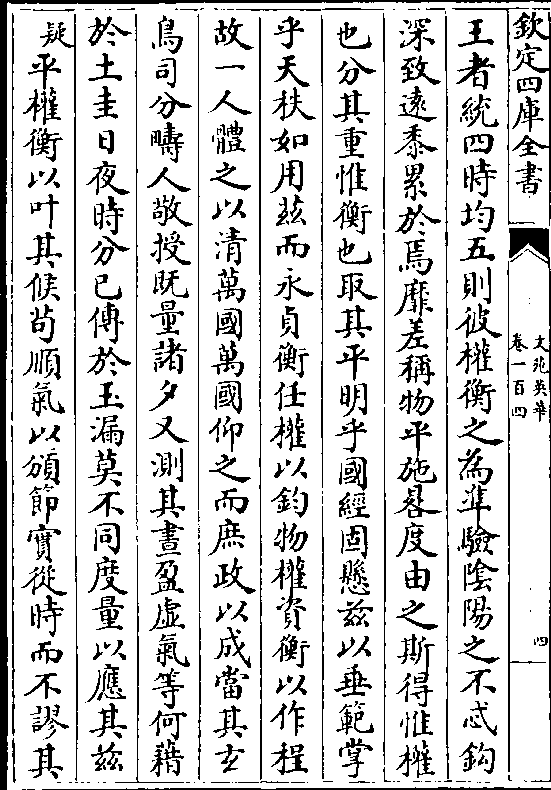 欽定四庫全書
文苑英華
卷一百四
四
王者統四時均五則彼權衡之為準驗陰陽之不忒鈎
深致遠黍累於焉靡差稱物平施晷度由之斯得惟權
也分其重惟衡也取其平明乎國經固懸兹以垂範掌
乎天秩如用茲而永貞衡任權以鈞物權資衡以作程
故一人體之以清萬國萬國仰之而庶政以成當其玄
鳥司分疇人敬授既量諸夕又測其晝盈虛氣等何藉
於土圭日夜時分已傳於玉漏莫不同度量以應其茲
疑平權衡以叶其候苟順氣以頒節實從時而不謬其